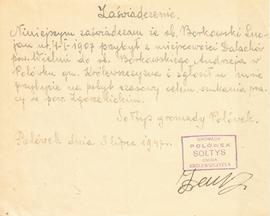 Zaświadczenie.
Niniejszym zaświadczam że ob. Borkowski Lucjan
ur. 7-I-1907 przybył z miejscowości Dalachów
pow. Wieluń do ob. Borkowskiego Andrzeja w
Polówku gm. Królewszczyzna i zgłosił u mnie
przybycie na pobyt czasowy celem szukania pracy
w pow. zgorzelickim.
Sołtys gromady Polówek.
Polówek dnia 3 lipca 1947 r.
GROMADA
POLÓWEK
SOŁTYS
GMINA
KRÓLEWSZCZYZNA